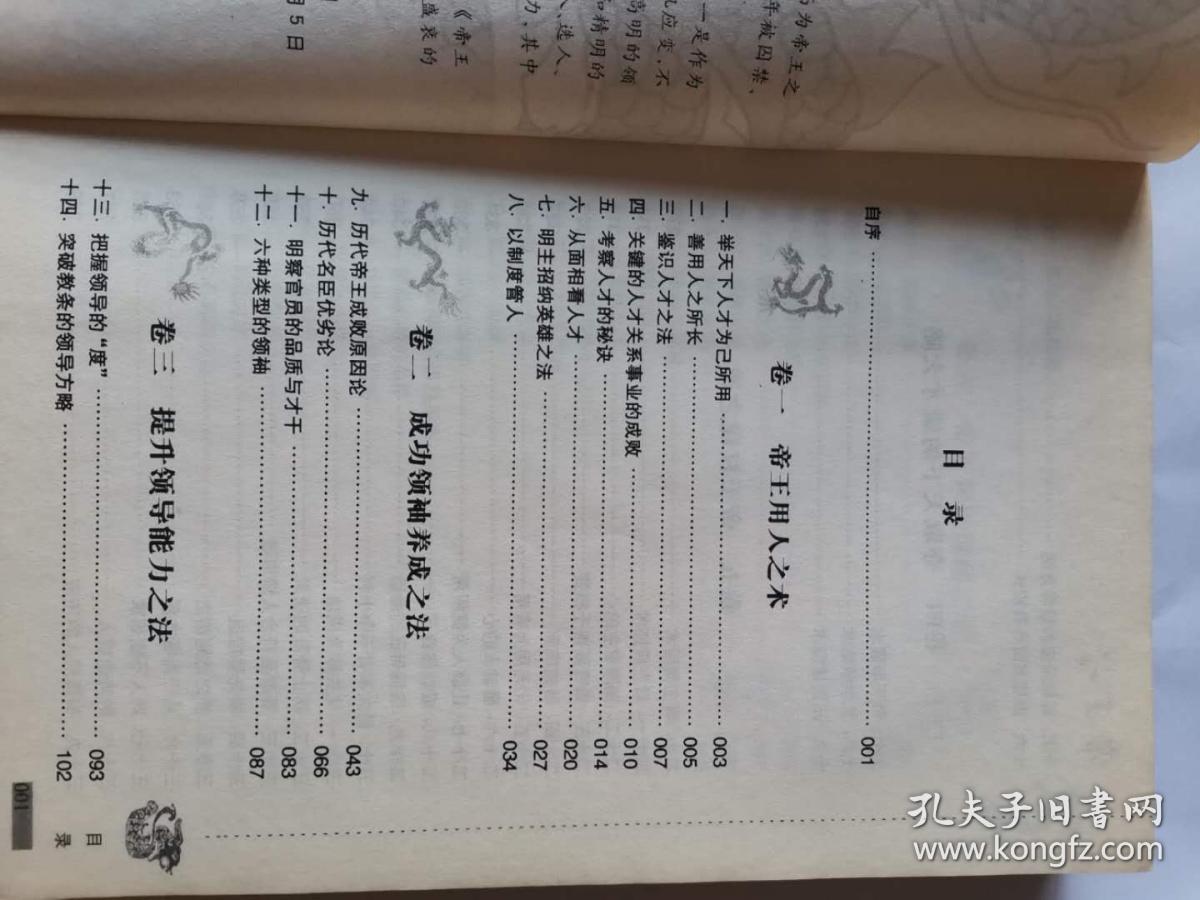 为帝王之
年被囚禁、
一是作为
机应变、不
高明的领
和精明的
、选人、
力,其中
《帝王
盛衰的
月5日
目 录
自序……………………001
卷一 帝王用人之术
一. 举天下人才为己所用……………………003
二. 善用人之所长……………………005
三. 鉴识人才之法……………………007
四. 关键的人才关系事业的成败……………………010
五. 考察人才的秘诀……………………014
六. 从面相看人才……………………020
七. 明主招纳英雄之法……………………027
八. 以制度管人……………………034
卷二 成功领袖养成之法
九. 历代帝王成败原因论……………………043
十. 历代名臣优劣论……………………066
十一. 明察官员的品质与才干……………………083
十二. 六种类型的领袖……………………087
卷三 提升领导能力之法
十三. 把握领导的“度”……………………093
十四. 突破教条的领导方略……………………102
目 录
001
孔夫子旧书网
www.kongfz.com